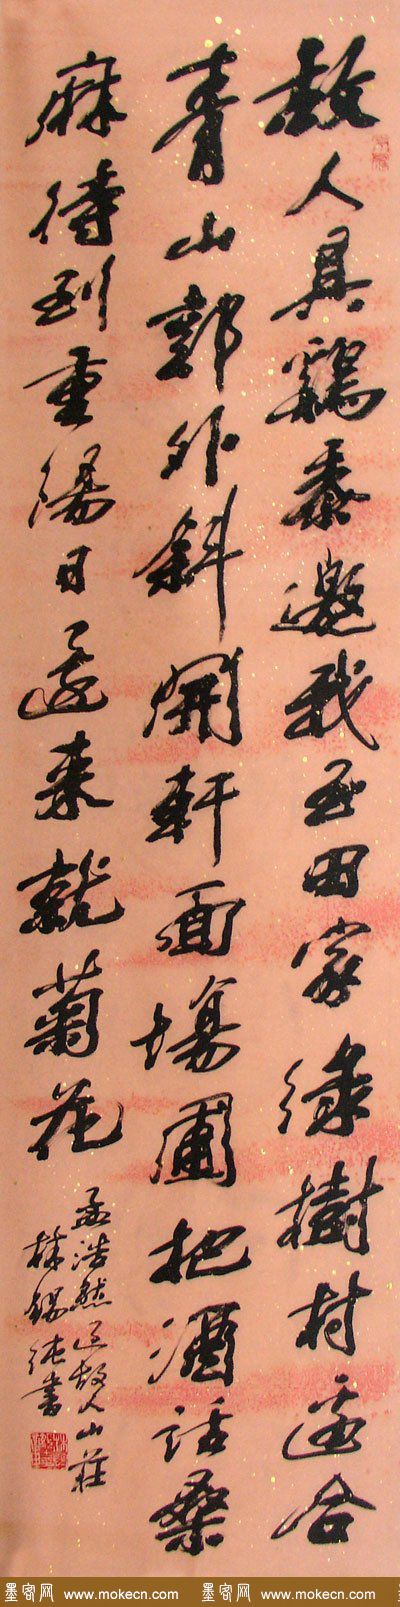 故人具鷄黍邀我至田家綠樹村邊合
青山郭外斜開軒面場圃把酒話桑
麻待到重陽日還来就菊花
孟浩然過故人山莊
林錫純書
墨客网 www.mokecn.com 墨客网 www.mokecn.com